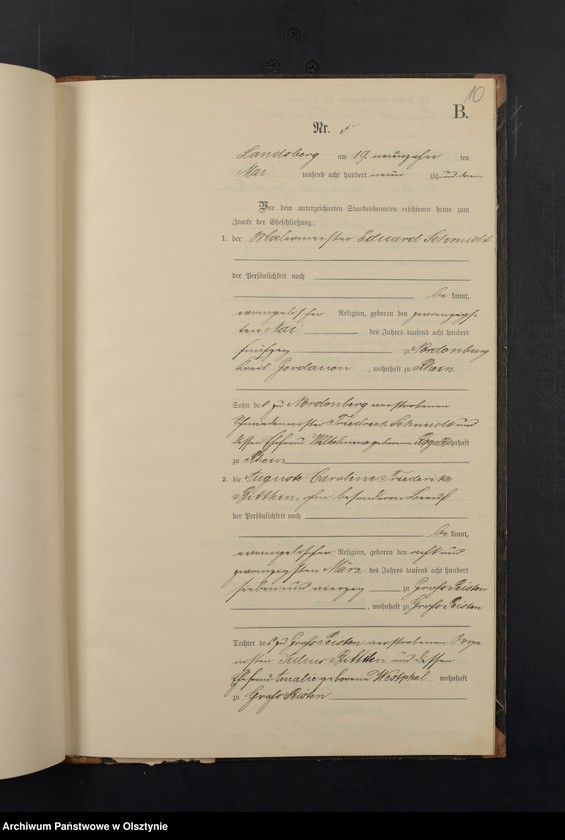 10
B.
Nr. 5
Landsberg am 19 neunzehn ten
Mai tausend acht hundert neun zig und
Vor dem unterzeichneten Standesbeamten erschienen heute zum
Zwecke der Eheschließung:
1. der Malermeister Eduard Schmidt
der Persönlichkeit nach
be kannt,
evangelischer Religion, geboren den zwanzigs-
ten Mai des Jahres tausend acht hundert
fünfzig zu Nordenburg
Kreis Gerdauen, wohnhaft zu Rhein
Sohn des zu Nordenburg verstorbenen
Schmiedemeister Friedrich Schmidt und
dessen Ehefrau Wilhelmine geborene wohnhaft
zu Rhein
2. die Auguste Caroline Friederike
Bitthin, ohne besonderen Beruf
der Persönlichkeit nach
be kannt,
evangelischer Religion, geboren den acht und
zwanzigsten März des Jahres tausend acht hundert
sieben und vierzig zu Groß Peisten
, wohnhaft zu Groß Peisten
Tochter des zu Groß Peisten verstorbenen Orga-
nisten Julius Bitthin und dessen
Ehefrau Amalie geborene Westphal wohnhaft
zu Groß Peisten
Archiwum Państwowe w Olsztynie